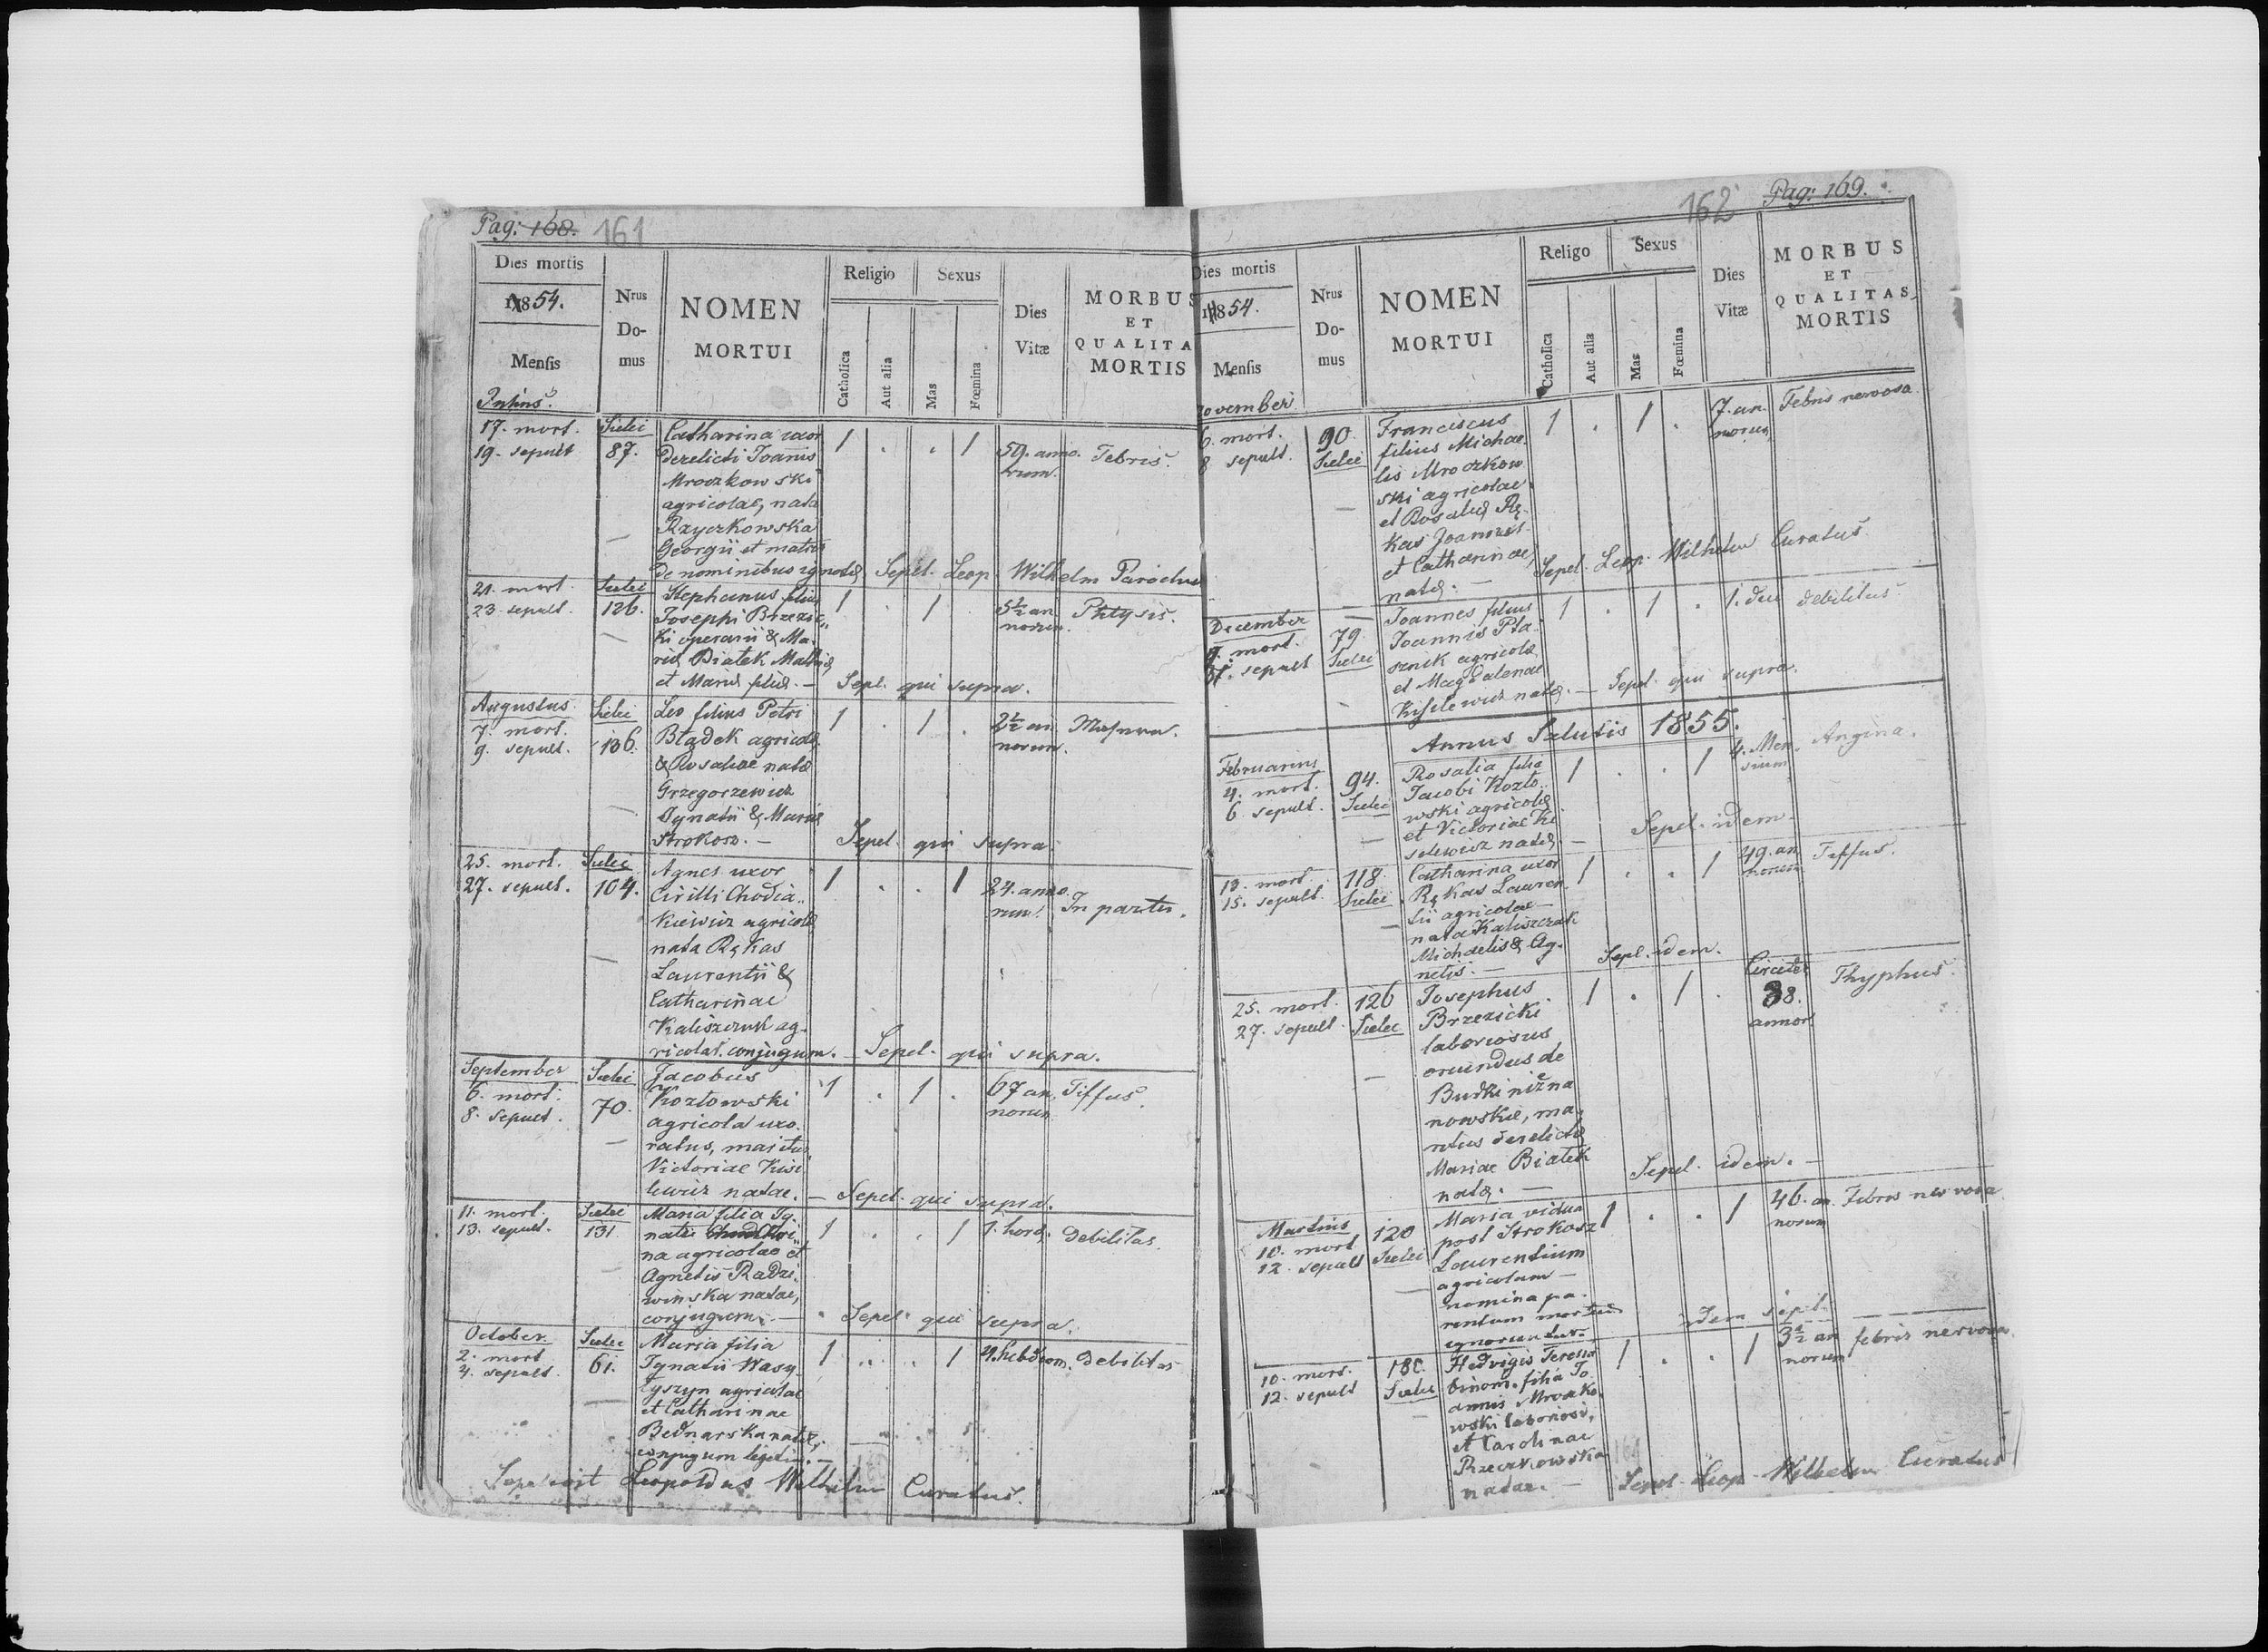 Pag: 168. 161
Dies mortis
1854.
Mensis
Nrus Domus
NOMEN
MORTUI
Religio
Catholica
Aut alia
Sexus
Mas
Fœmina
Dies
Vitæ
MORBUS
ET
QUALITA
MORTIS
Julius.
17. mort.
19. sepult
Sielci
87.
Catharina uxor
derelicti Joanis
Mroczkowski
agricolae, nata
Rzyczkowska
Georgii et matris
de nominibus ignotis
1 . . 1
59. anno
rum.
Febris.
Sepel. Leop. Wilhelm Parochus
21. mort.
23. sepult.
Sielci
126.
Stephanus filius
Josephi Brzezic
ki operarii & Ma
riæ Białek Mathiæ
et Mariæ filiæ. —
1 . 1 .
5½ an
norum.
Phtysis.
Sepel. qui supra.
Augustus
7. mort.
9. sepult.
Sielci
136.
Leo filius Petri
Błądek agricolæ
& Rosaliae natæ
Grzegorzewicz
Ignatii & Mariæ
Strokosz. —
1 . 1 .
2½ an
norum.
Sepel. qui supra.
25. mort.
27. sepult.
Sielci
104.
Agnes uxor
Cirilli Chodia
kiewicz agricolæ
nata Rękas
Laurentii &
Catharinae
Kaliszczuk ag
ricolar. conjugum. —
1 . . 1
24. anno
rum.
In partu.
Sepel. qui supra.
September
6. mort.
8. sepult.
Sielci
70.
Jacobus
Kozłowski
agricola uxo
ratus, maritus
Victoriae Kisi
lewicz natae. —
1 . 1 .
67 an
norum
Tiffus.
Sepel. qui supra.
11. mort.
13. sepult.
Sielec
131
Maria filia Ig
natii
na agricolae et
Agnetis Radzi
winska natae,
conjugum. —
1 . . 1
1. hora.
debilitas.
Sepel. qui supra.
October.
2. mort
4. sepult.
Sielec
61.
Maria filia
Ignatii Wasy
łyszyn agricolae
et Catharinae
Bednarska natæ,
conjugum legitim. —
1 . . 1
4. hebdom.
debilitas
Sepelivit Leopoldus Wilhelm Curatus.
162 Pag: 169.
Dies mortis
1854.
Mensis
Nrus Domus
NOMEN
MORTUI
Religo
Catholica
Aut alia
Sexus
Mas
Fœmina
Dies
Vitæ
MORBUS
ET
QUALITAS
MORTIS
November
6. mort.
8 sepult.
90.
Sielci
Franciscus
filius Michae
lis Mroczkow
ski agricolae
et Rosaliæ Rę
kas Joannis
et Catharinae,
natæ. —
1 . 1 .
7. an
norum
Febris nervosa
Sepel. Leop. Wilhelm Curatus.
December
9. mort.
11. sepult
79
Sielci
Joannes filius
Joannis Pta
sznik agricolæ
et Magdalenae
Kislewicz natæ. —
1 . 1 .
1. diei
debilitas
Sepel. qui supra.
Annus Salutis 1855.
Februarius
4. mort.
6. sepult.
94.
Sielci
Rosalia filia
Jacobi Kozło
wski agricolæ
et Victoriae Ki
selewicz natæ —
1 . . 1
4. Men
sium
Angina.
Sepel. idem.
13. mort.
15. sepult.
118.
Sielci
Catharina uxor
Rękas Lauren
tii agricolae
nata Kaliszczuk
Michaelis & Ag
netis. —
1 . . 1
49. an
norum
Tiffus.
Sepel. idem.
25. mort.
27. sepult.
126
Sielec
Josephus
Brzezicki
laboriosus
oriundus de
Budki niezna
nowskie, ma
ritus derelictæ
Mariae Białek
natæ. —
1 . 1 .
Circiter
38.
annor
Thyphus.
Sepel. idem. —
Martius
10. mort
12. sepult
120
Sielci
Maria vidua
post Strokosz
Laurentium
agricolam —
nomina pa
rentum mortuæ
ignoruntur.
1 . . 1
46. an
norum
Febris nervosa
Idem sepel.
10. mort.
12. sepult
180.
Sielec
Hedvigis Teressa
binom. filia Jo
annis Mroczko
wski laboriosi,
et Carolinae
Rzeczkowska
natae. —
1 . . 1
3½ an
norum
febris nervosa
Sepel. Leop. Wilhelm Curatus